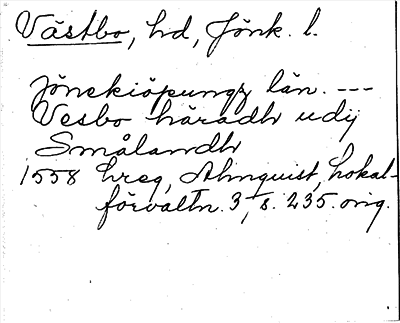 Västbo, hd, Jönk. l.
Jönekiöpungz län. ---
Vesbo häradh udij
Smålandh
1558 hreg, Almquist, Lokal-
förvaltn. 3, s. 235. orig.